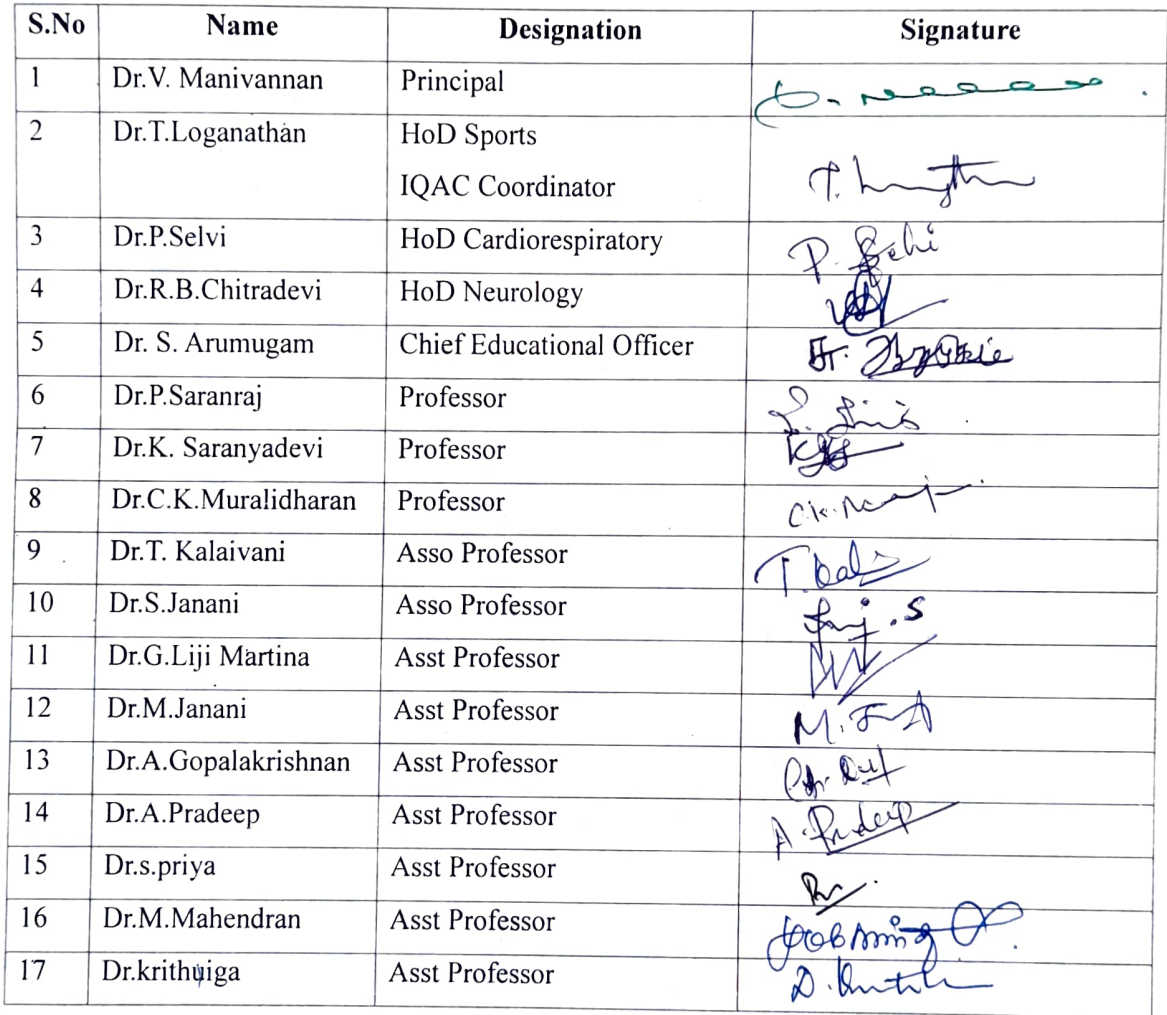 S.No Name Designation Signature
1 Dr.V. Manivannan Principal
2 Dr.T.Loganathan HoD Sports
IQAC Coordinator
3 Dr.P.Selvi HoD Cardiorespiratory
4 Dr.R.B.Chitradevi HoD Neurology
5 Dr. S. Arumugam Chief Educational Officer
6 Dr.P.Saranraj Professor
7 Dr.K. Saranyadevi Professor
8 Dr.C.K.Muralidharan Professor
9 Dr.T. Kalaivani Asso Professor
10 Dr.S.Janani Asso Professor
11 Dr.G.Liji Martina Asst Professor
12 Dr.M.Janani Asst Professor
13 Dr.A.Gopalakrishnan Asst Professor
14 Dr.A.Pradeep Asst Professor A.Pradeep
15 Dr.s.priya Asst Professor
16 Dr.M.Mahendran Asst Professor
17 Dr.krithuiga Asst Professor